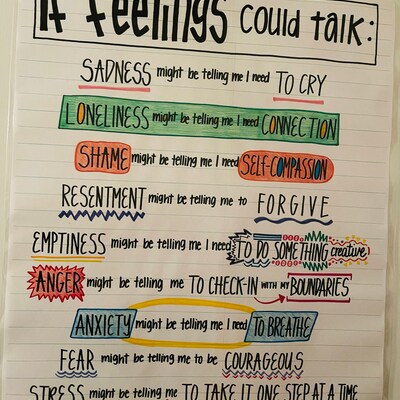 If feelings could talk:
SADNESS might be telling me I need TO CRY
LONELINESS might be telling me I need CONNECTION
SHAME might be telling me I need SELF-COMPASSION
RESENTMENT might be telling me to FORGIVE
EMPTINESS might be telling me I need TO DO SOMETHING creative
ANGER might be telling me TO CHECK-IN WITH MY BOUNDARIES
ANXIETY might be telling me I need TO BREATHE
FEAR might be telling me to be COURAGEOUS
STRESS might be telling me TO TAKE IT ONE STEP AT A TIME